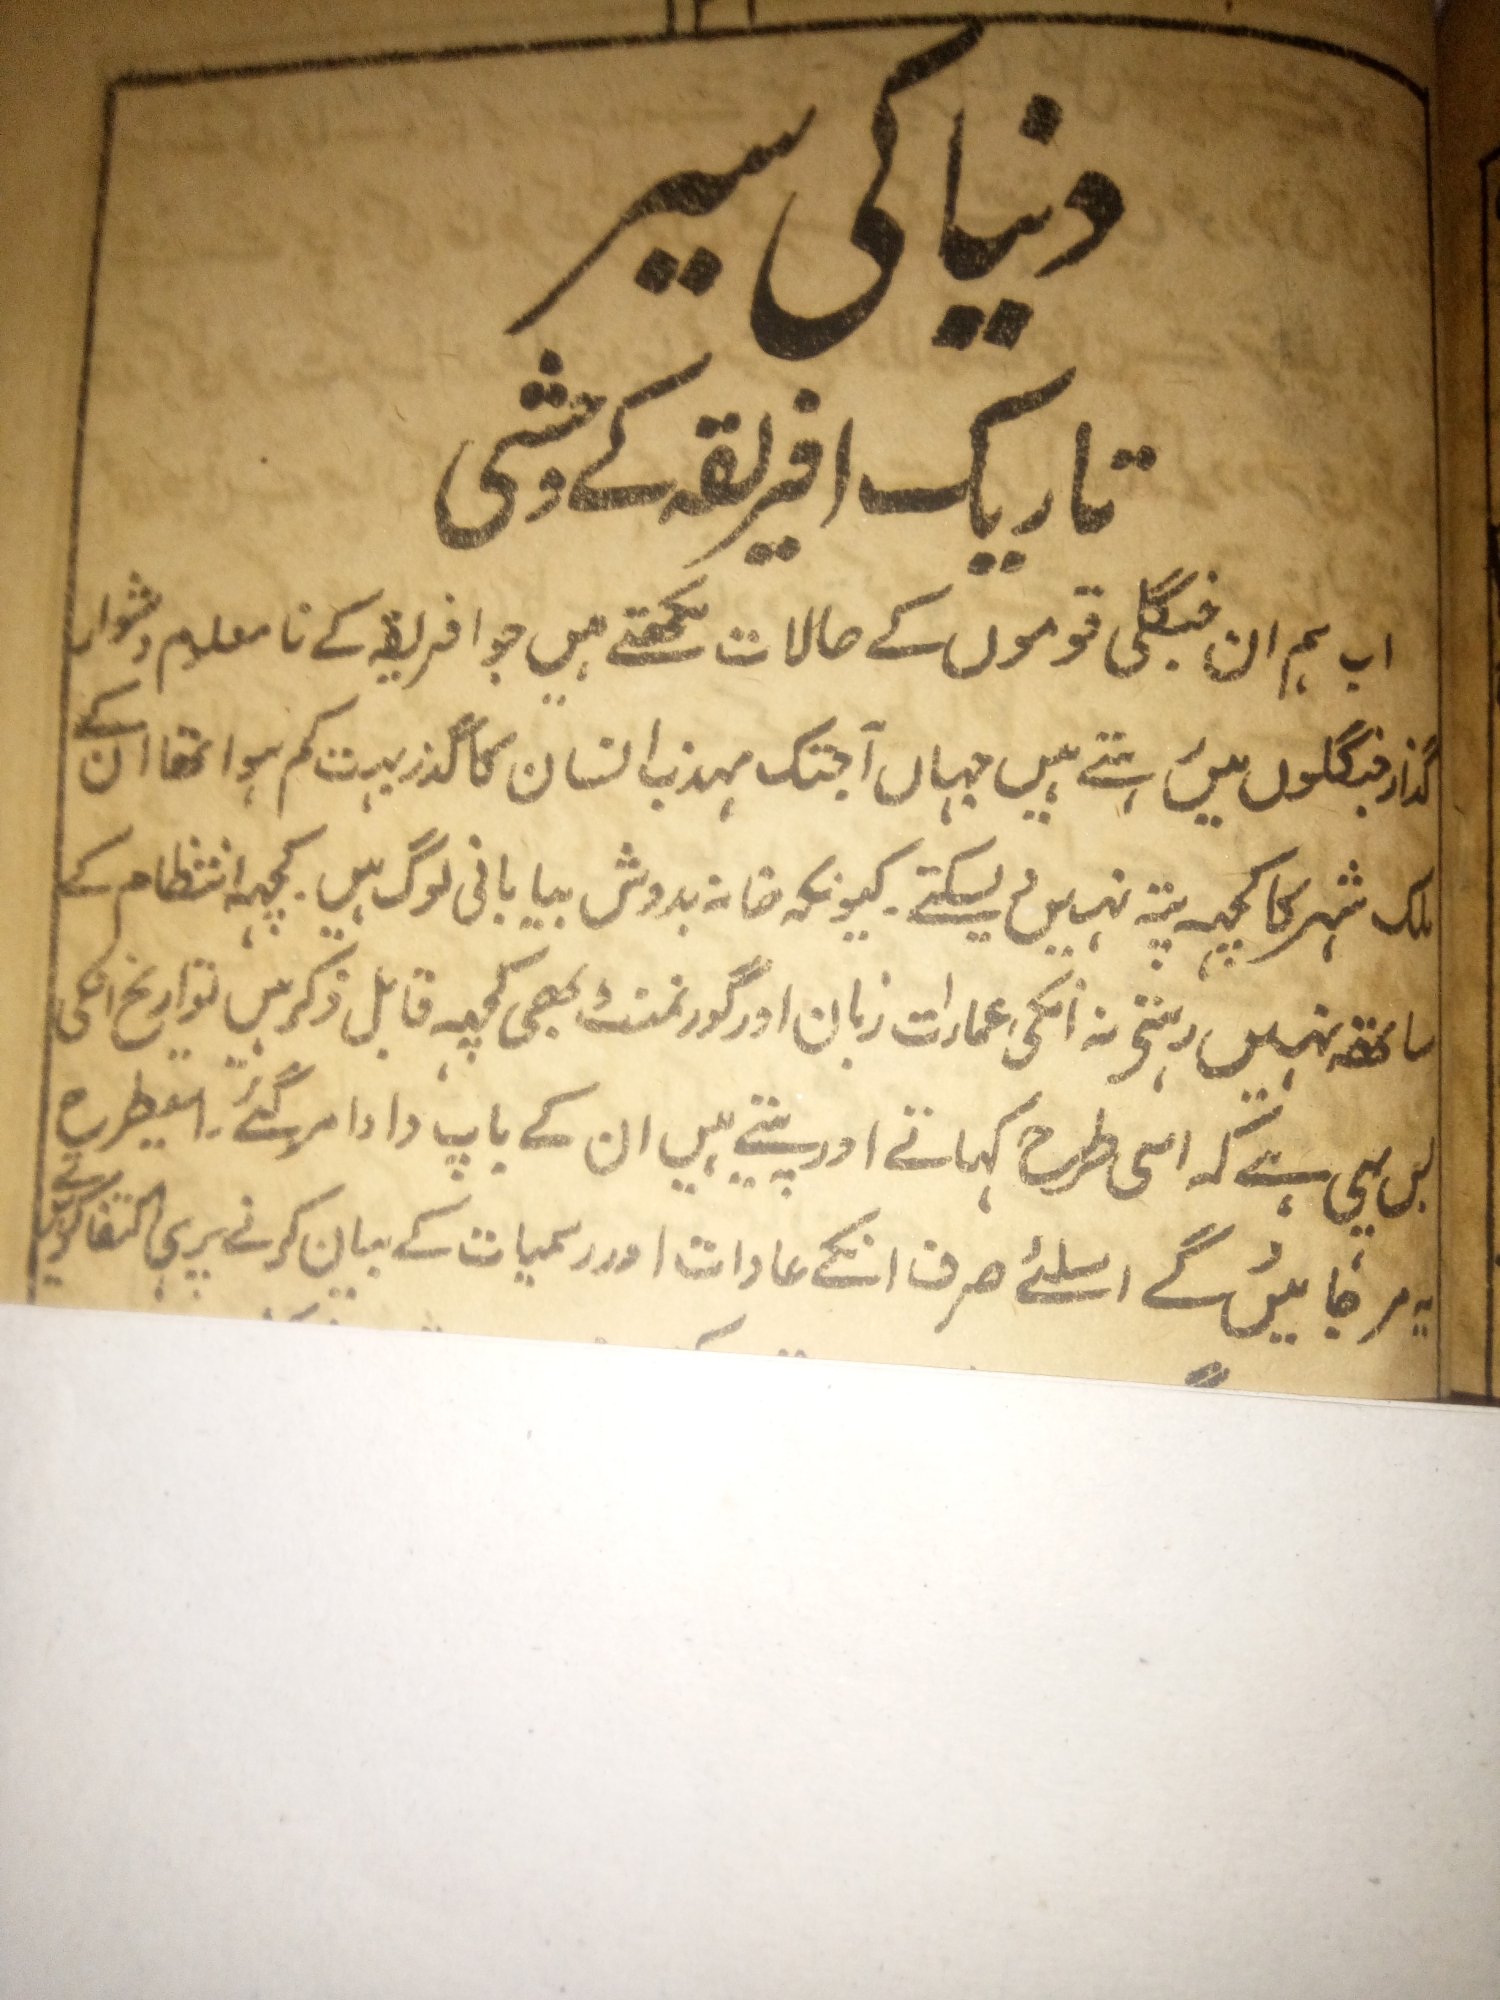 دنیا کی سیر
تاریک افریقہ کے وحشی
اب ہم ان جنگلی قوموں کے حالات لکھتے ہیں جو افریقہ کے نا معلوم دشوار
گذار جنگلوں میں رہتے ہیں جہاں آجتک مہذب انسان کا گذر بہت کم ہوا تھا ان کے
ملک شہر کا کچہہ پتہ نہیں دیسکتے ۔ کیونکہ خانہ بدوش بیابانی لوگ ہیں ۔ کچہہ انتظام کے
ساتھہ نہیں رہتے نہ انکی عمارات زبان اور گورنمنٹ بھی کچہہ قابل ذکر ہیں تواریخ انکی
بس یہی ہے کہ اسی طرح کہاتے اور پیتے ہیں ان کے باپ دادا مر گئے ۔ اسیطرح
یہ مر جائیں گے اسلئے صرف انکے عادات اور رسمیات کے بیان کرنے پر ہی اکتفا کرتے